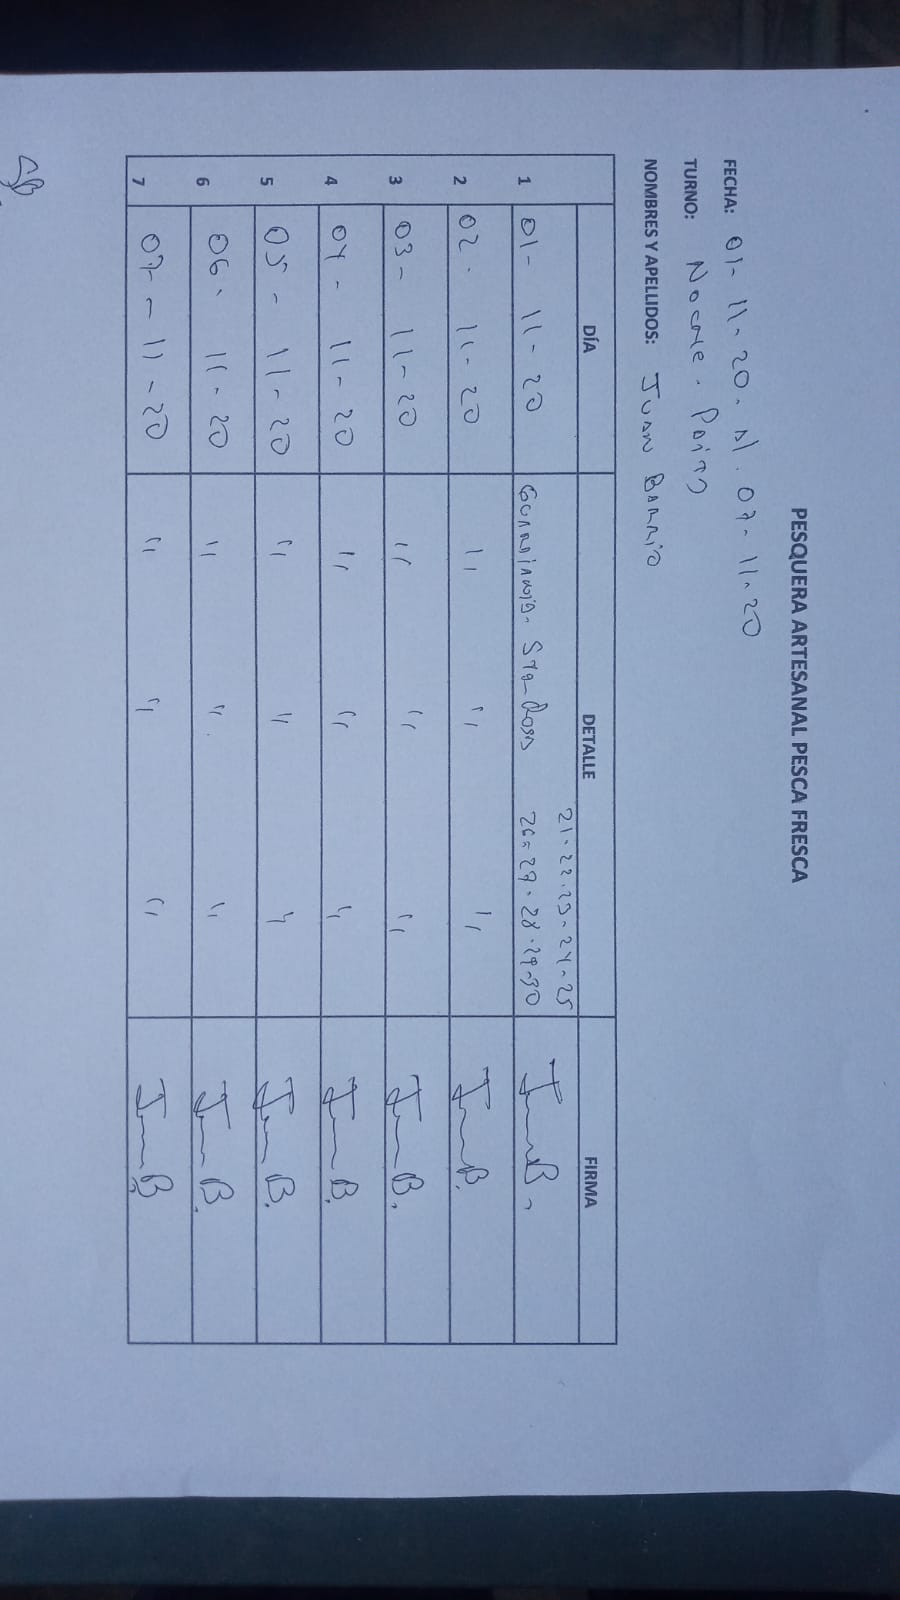 PESQUERA ARTESANAL PESCA FRESCA
FECHA: 01-11-20. Al. 07-11-20
TURNO: Noche. Paita
NOMBRES Y APELLIDOS: Juan Barrio
DÍA DETALLE FIRMA
21-22-23-24-25
1 01-11-20 Guardiania. Sta Rosa 26-27-28-29-30 Juan B.
2 02-11-20 " " " Juan B.
3 03-11-20 " " " Juan B.
4 04-11-20 " " " Juan B.
5 05-11-20 " " " Juan B.
6 06-11-20 " " " Juan B.
7 07-11-20 " " " Juan B.